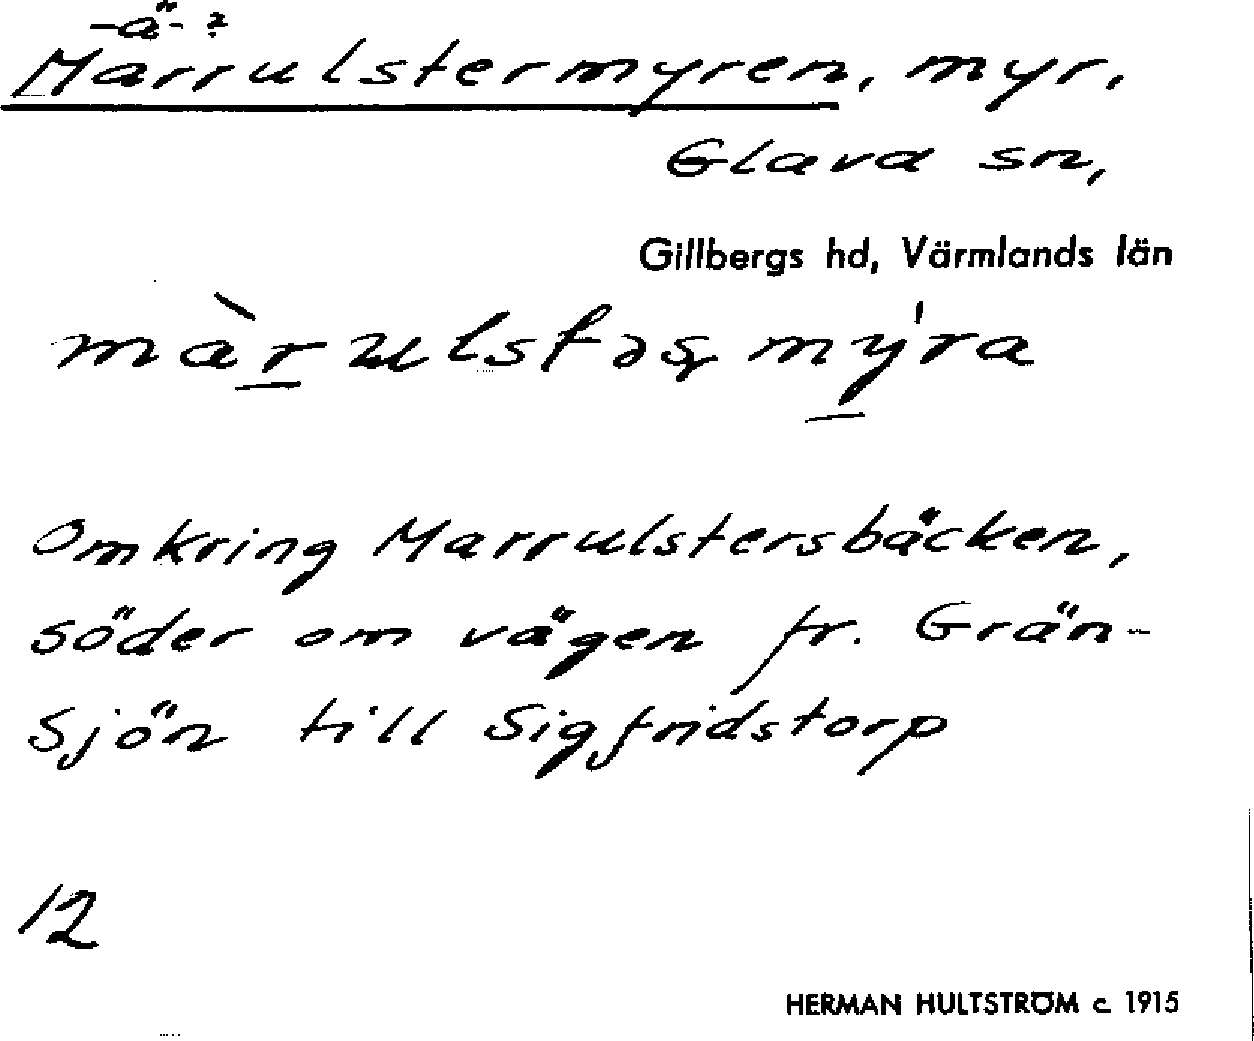 -ä- ?
Marrulstermyren, myr,
Glava sn,
Gillbergs hd, Värmlands län
Omkring Marrulstersbäcken,
söder om vägen fr. Grän-
sjön till Sigfridstorp
12
HERMAN HULTSTRÖM c. 1915